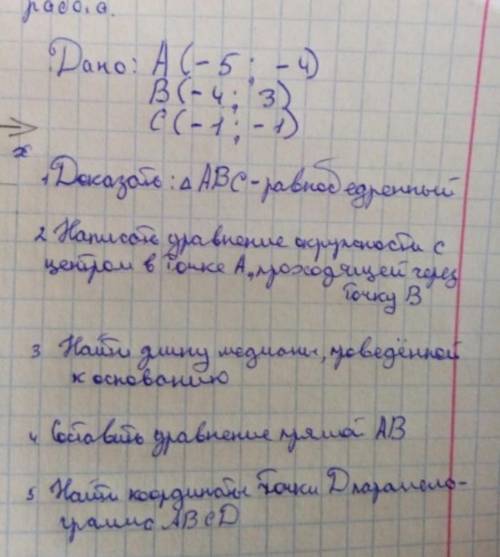 работа.
Дано: А (-5 ; -4)
В (-4 ; 3)
С (-1 ; -1)
x
1 Доказать: △ АВС - равнобедренный
2 Написать уравнение окружности с
центром в точке А, проходящей через
точку В
3 Найти длину медианы, проведённой
к основанию
4 Составить уравнение прямой АВ
5 Найти координаты точки D параллело-
грамма ABCD